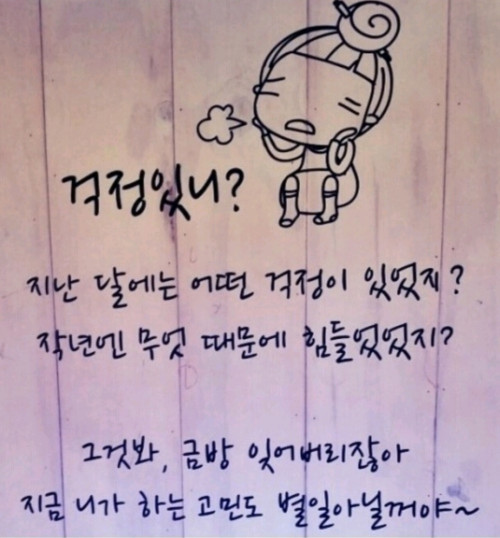 걱정있니?
지난 달에는 어떤 걱정이 있었지?
작년엔 무엇 때문에 힘들었었지?
그것봐, 금방 잊어버리잖아
지금 니가 하는 고민도 별일아닐꺼야~